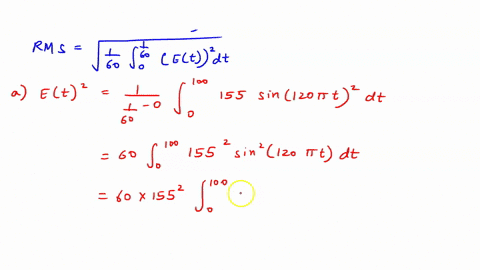 RMS = √(1/60 ∫₀^(1/60) (E(t))² dt)
a) E(t)² = 1/(1/60 - 0) ∫₀^100 155 sin(120πt)² dt
= 60 ∫₀^100 155² sin²(120 πt) dt
= 60 × 155² ∫₀^100